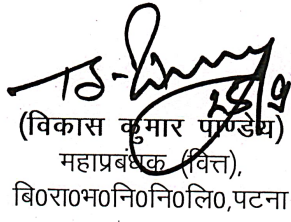 28/9
(विकास कुमार पाण्डेय)
महाप्रबंधक (वित्त),
बि0रा0भ0नि0नि0लि0,पटना